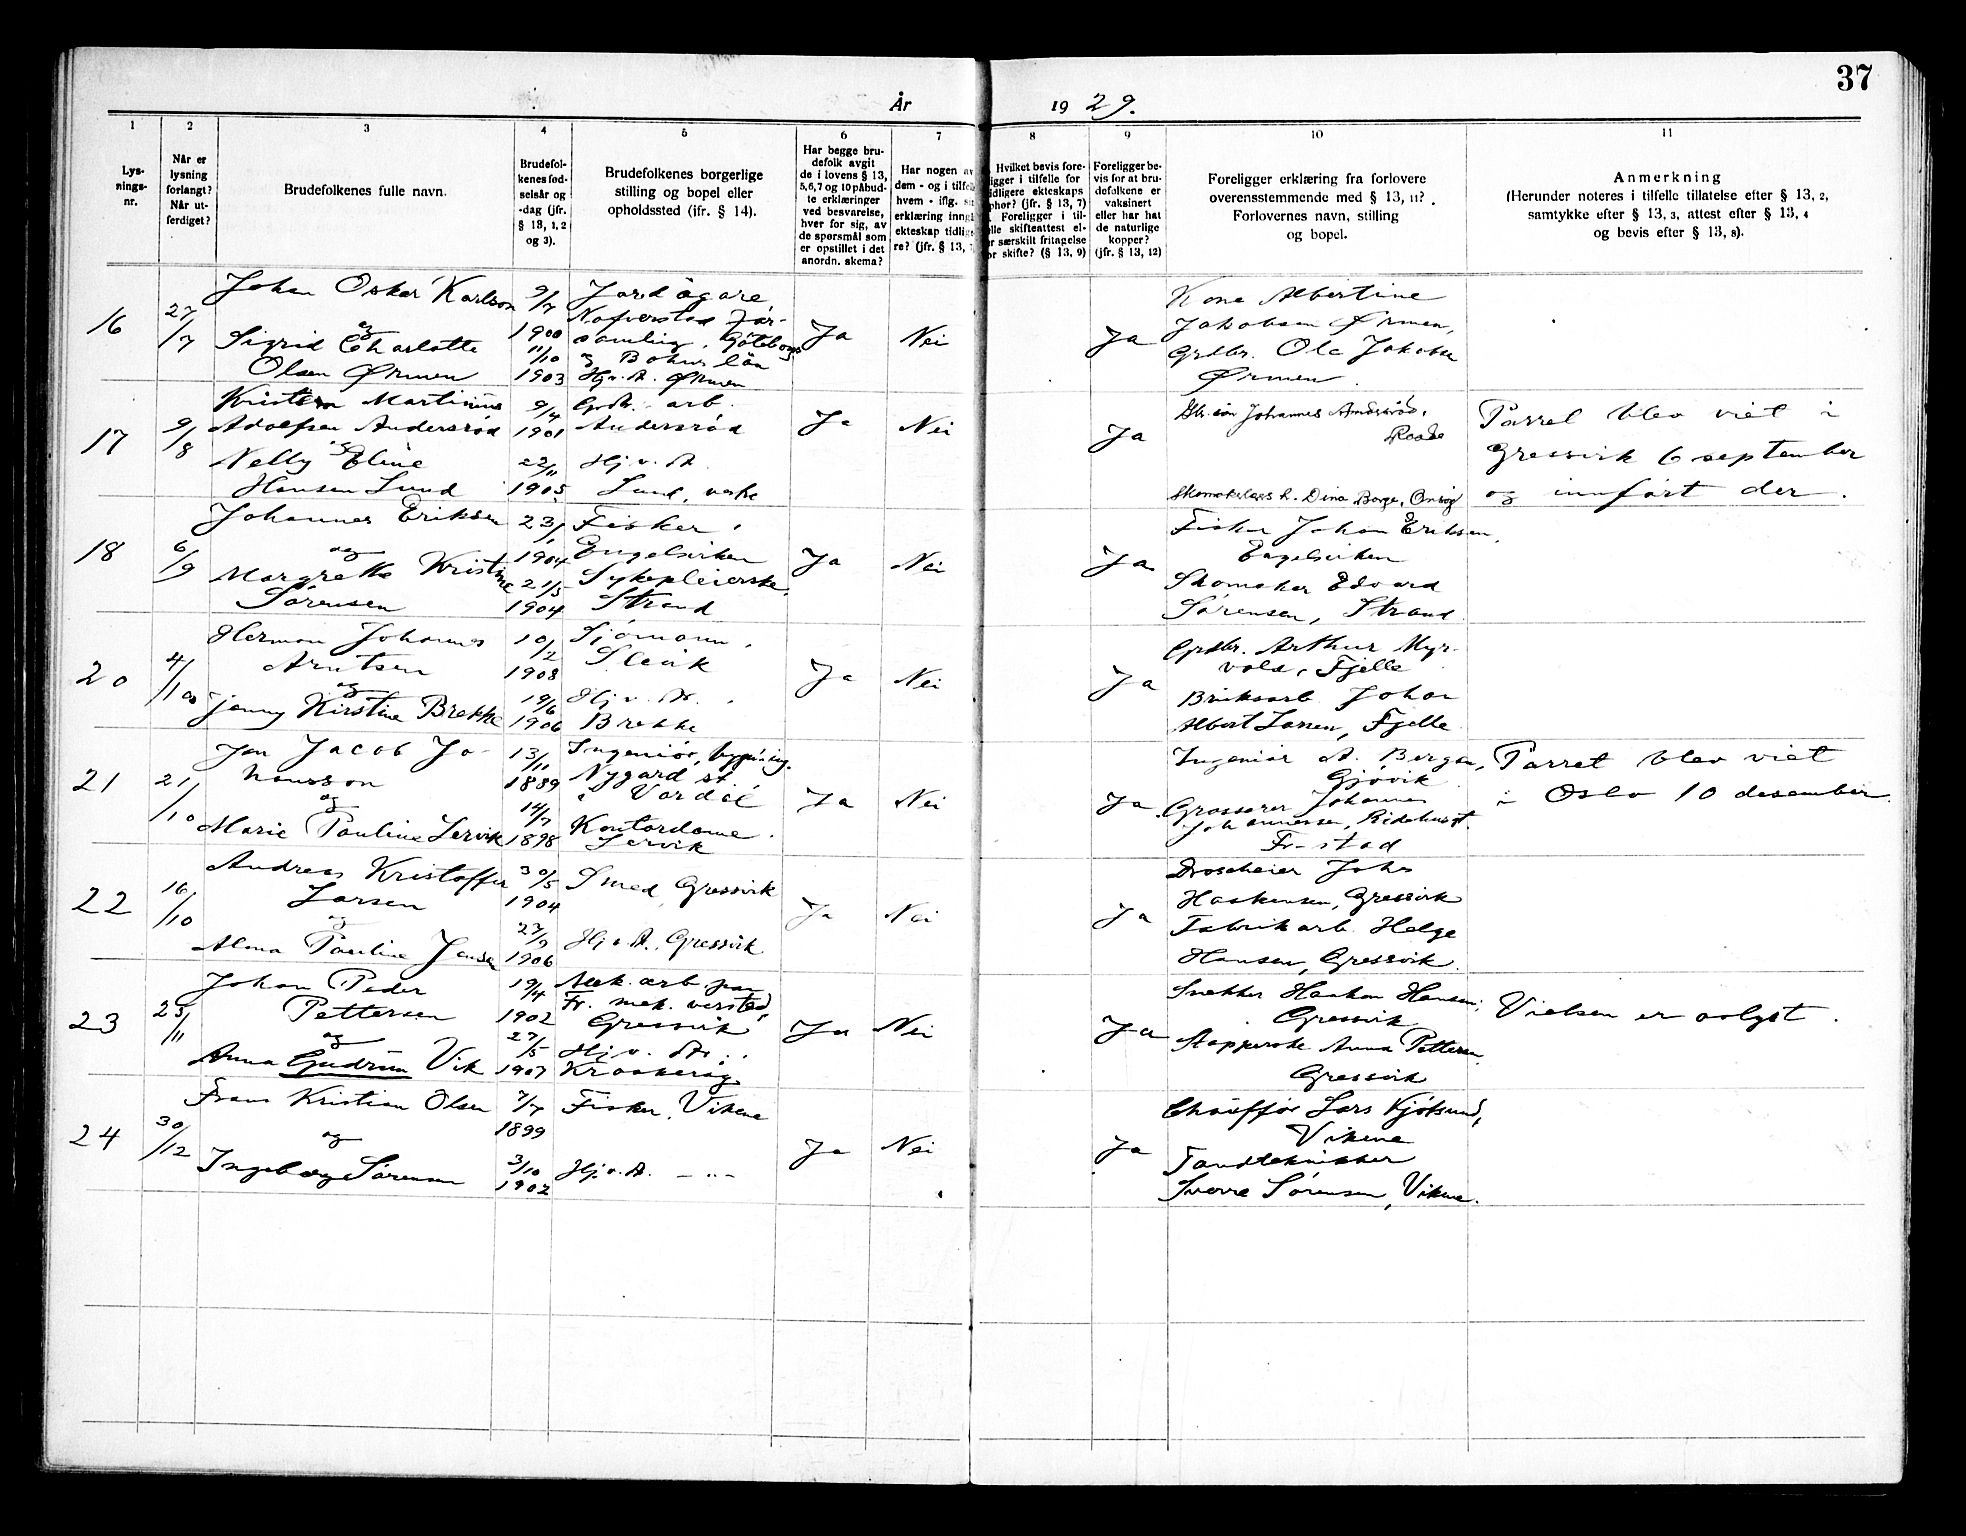 37
År 1929.
1 2 3 4 5 6 7 8 9 10 11
Lys-
nings-
nr.
Når er
lysning
forlangt?
Når ut-
ferdiget?
Brudefolkenes fulle navn.
Brudefol-
kenes fød-
selsår og
-dag (jfr.
§ 13, 1, 2
og 3).
Brudefolkenes borgerlige
stilling og bopel eller
opholdssted (ifr. § 14).
Har begge bru-
defolk avgit
de i lovens § 13,
5,6,7 og 10 påbud-
te erklæringer
ved besvarelse,
hver for sig, av
de spørsmål som
er opstillet i det
anordn. skema?
Har nogen av
dem - og i tilfelle
hvem - iflg.
erklæring inng
ekteskap tidlig
re? (jfr. § 13,
Hvilket bevis fore-
ligger i tilfelle for
tidligere ekteskaps
ophør? (jfr. § 13, 7)
Foreligger i til-
felle skifteattest el-
ler særskilt fritagelse
for skifte? (§ 13, 9)
Foreligger be-
vis for at bru-
defolkene er
vaksinert
eller har hat
de naturlige
kopper?
(jfr. § 13, 12)
Foreligger erklæring fra forlovere
overensstemmende med § 13, 11?
Forlovernes navn, stilling
og bopel.
Anmerkning
(Herunder noteres i tilfelle tillatelse efter § 13, 2,
samtykke efter § 13, 3, attest efter § 13, 4
og bevis efter § 13, 8).
16
27/7
Johan Oskar Karlsson
og
Sigrid Charlotte
Olsen Ørmen
9/7
1900
11/10
1903
Jordägare,
Nafverstad för-
samling, Göteborgs
og Bohus län
Hj.v.A. Ørmen
Ja
Nei
Ja
Kone Albertine
Jakobsen Ørmen,
Grdbr. Ole Jakobsen
Ørmen.
17
9/8
Kristen Martinius
Adolfsen Andersrød
og
Nelly Eline
Hansen Lund
9/4
1901
22/11
1905
Grdb. arb.
Andersrød
Hj.v.A.
Lund,
Ja
Nei
Ja
Johannes
Raade
Dina Borge, Onsøy
Parret blev viet i
Gressvik 6 september
og innført der.
18
6/9
Johannes Eriksen
og
Margrethe Kristine
Sørensen
23/1
1904
21/5
1904
Fisker,
Engelsviken
Sykepleierske,
Strand
Ja
Nei
Ja
Fisker Johan Eriksen,
Engelsviken
Skomaker Edvard
Sørensen, Strand
20
4/10
Herman Johannes
Arntsen
og
Jenny Kirstine Brekke
10/2
1908
19/6
1906
Sjømann,
Slevik
Hj.v.A.,
Brekke
Ja
Nei
Ja
Grdbr. Arthur Myr-
vold, Fjelle
Bruksarb Johan
Albert Larsen, Fjelle
21
21/10
Jan Jacob Jo-
hansson
og
Marie Pauline Lervik
13/11
1889
14/7
1898
Ingeniør,
Nygard st.
i Vardal
Kontordame.
Lervik
Ja
Nei
Ja
Ingeniør A. Bergan,
Gjøvik
Grosserer Johannes
Johannessen, Ridehusst.
Fr-stad
Parret blev viet
i Oslo 10 desember.
22
16/10
Andreas Kristoffer
Larsen
og
Alma Pauline Jensen
30/5
1904
27/9
1906
Smed, Gressvik
Hj.v.A., Gressvik
Ja
Nei
Ja
Droscheier John
Haakensen, Gressvik
Fabrikarb. Helge
Hansen, Gressvik.
23
25/11
Johan Peder
Pettersen
og
Anna Gudrun Vik
19/4
1902
27/5
1907
Mek. arb. paa
Fr. mek. versted,
Gressvik
Hj.v.A..
Kraakerøy
Ja
Nei
Ja
Snekker Haakon Hansen,
Gressvik
Anna Pettersen
Gressvik
Vielsen er avlyst.
24
30/12
Frans Kristian Olsen
og
Ingeborg Sørensen
7/7
1899
3/10
1902
Fisker, Vikene
Hj.v.A. -"-
Ja
Nei
Ja
Chauffør Lars Kjølsund,
Vikene
Tandtekniker
Sverre Sørensen, Vikene.